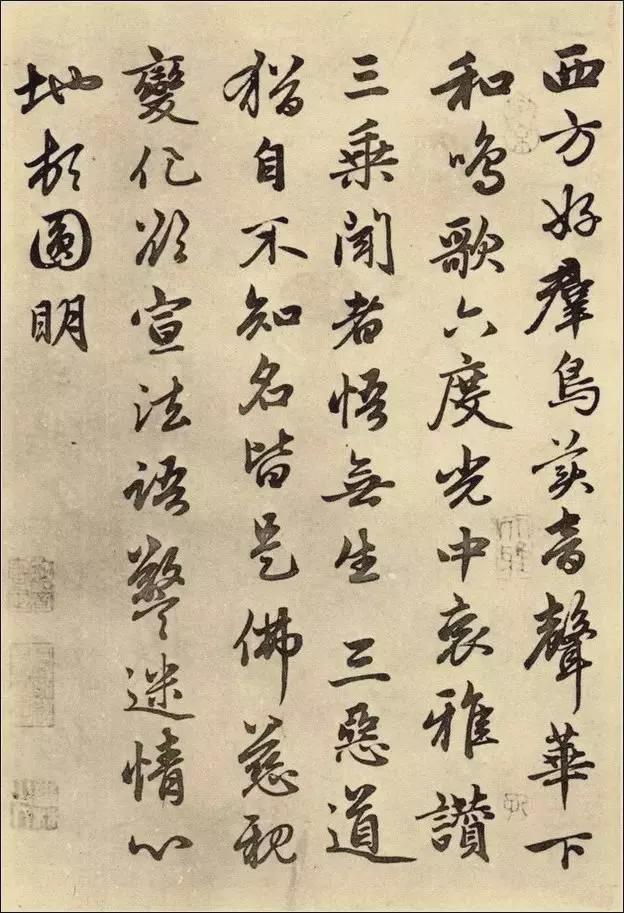 西方好羣鳥美音聲華下
和鳴歌六度光中哀雅讚
三乗聞者悟無生　三惡道
猶自不知名皆是佛慈親
變化欲宣法語警迷情心
地頓圓明